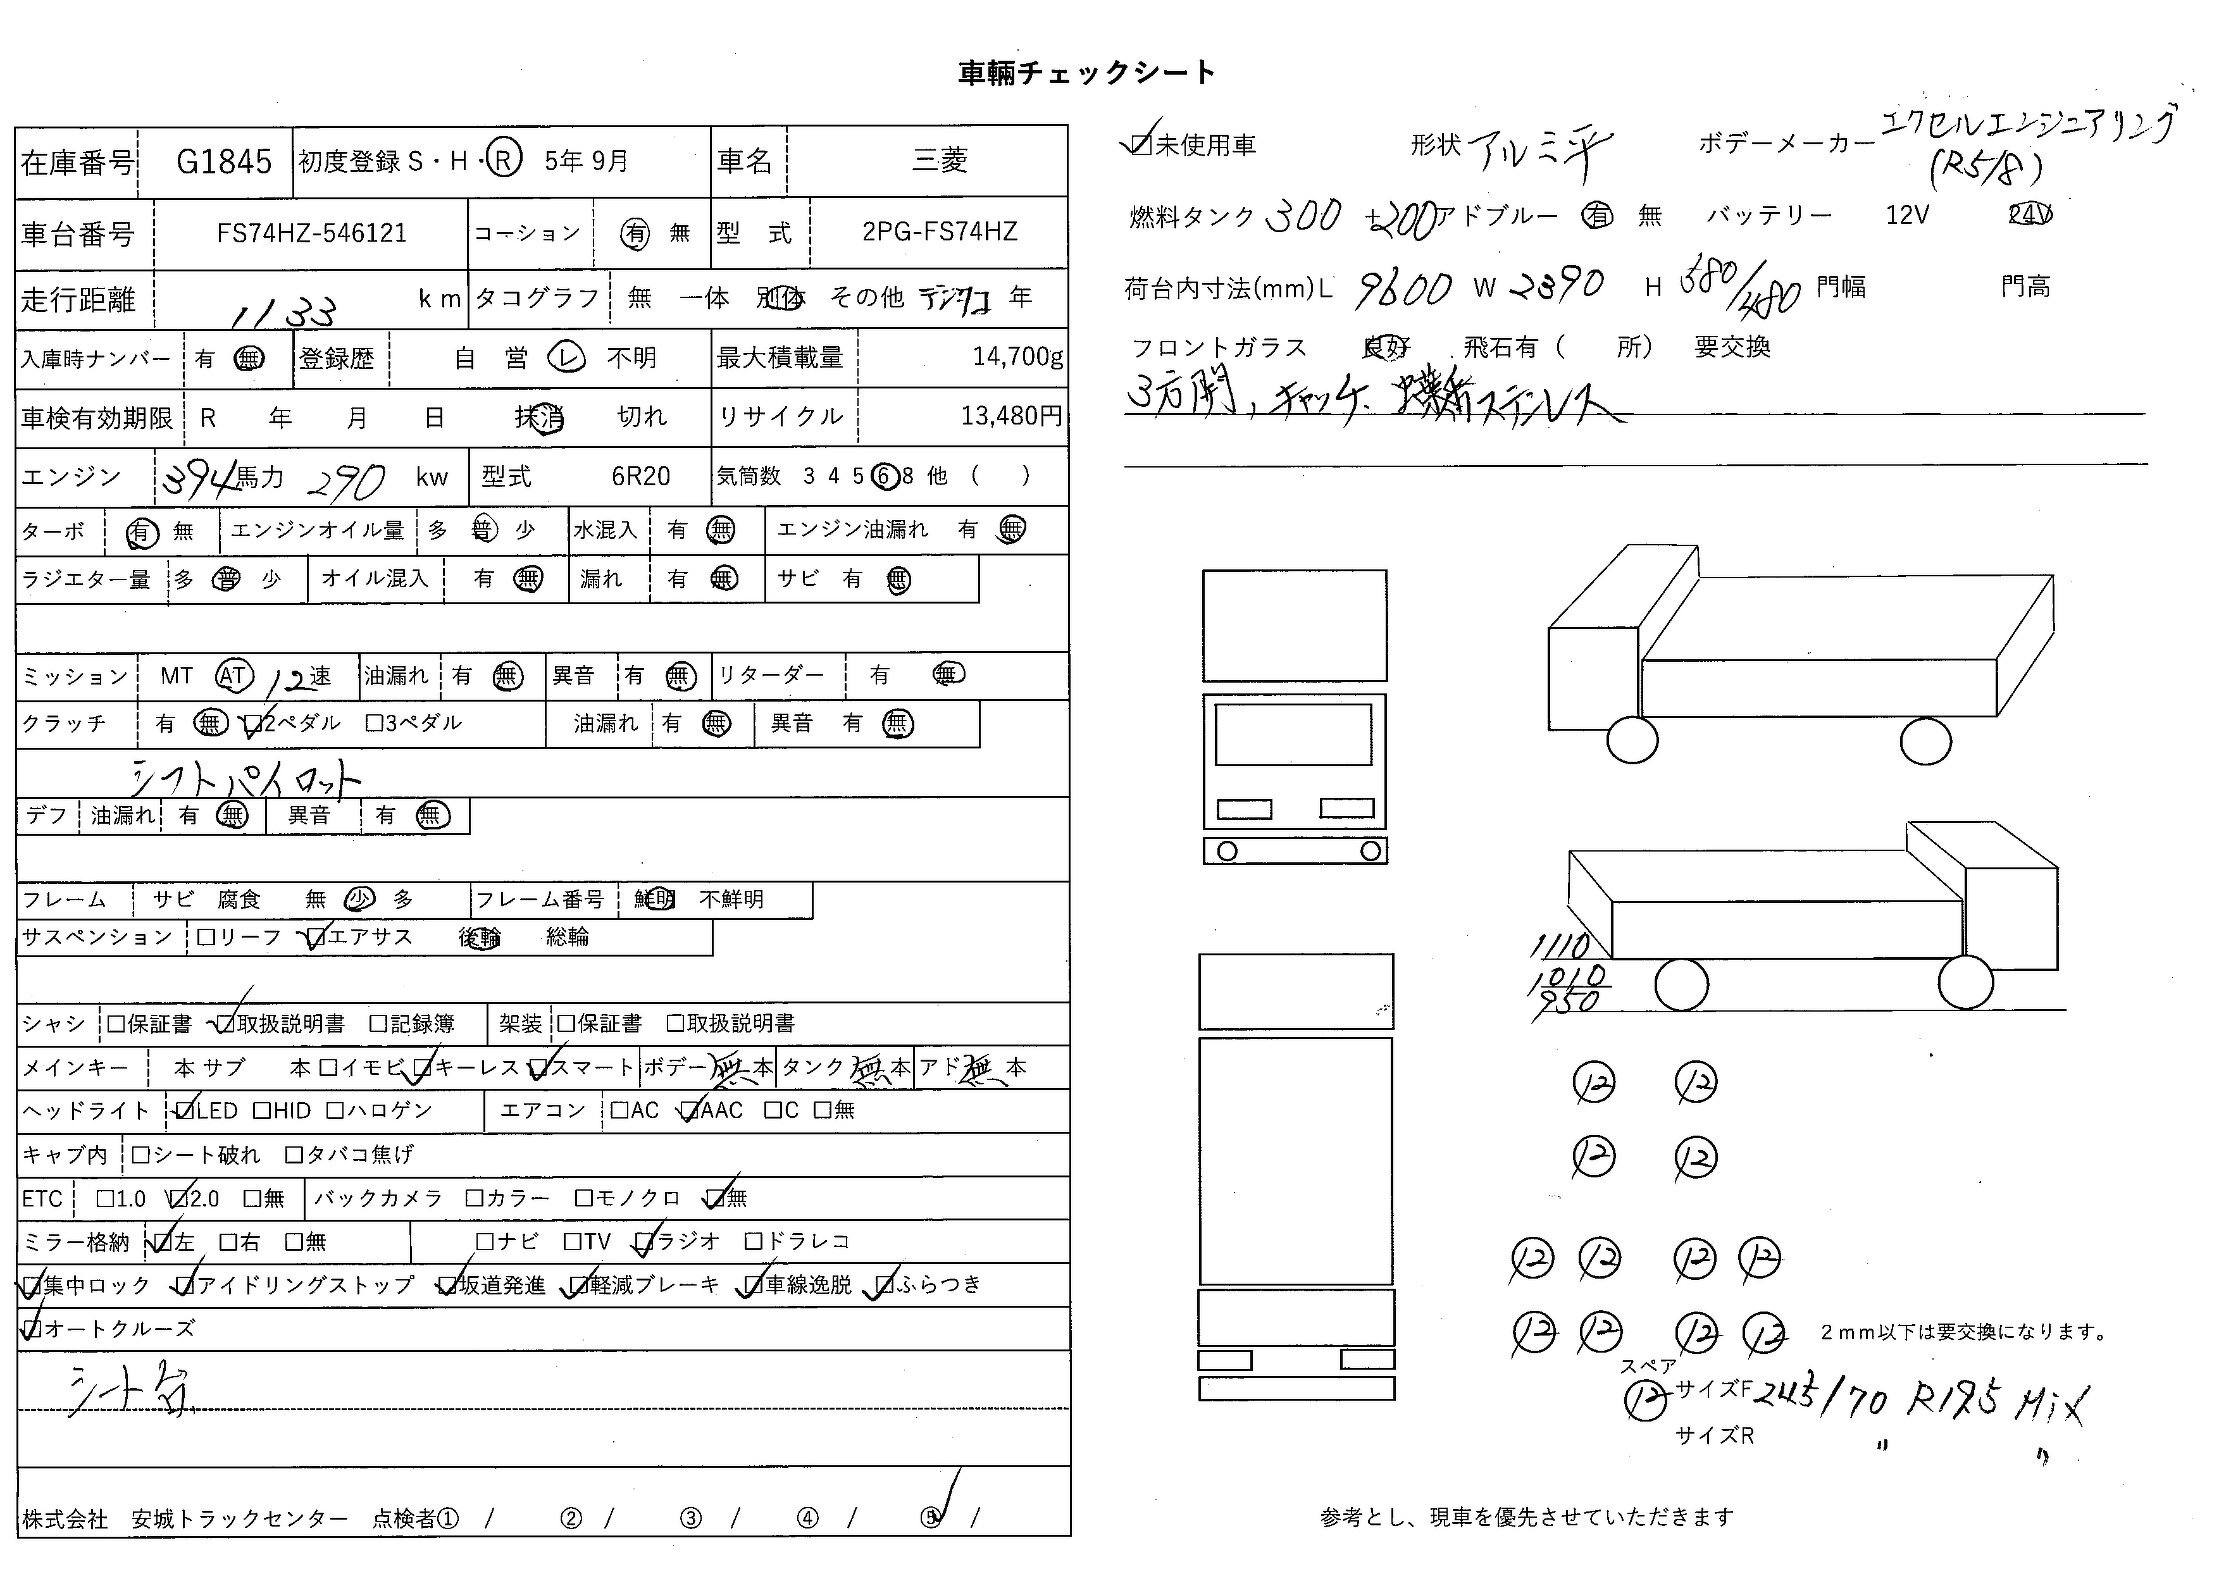 車輛チェックシート
在庫番号 G1845 初度登録 S・H・R 5年 9月 車名 三菱
車台番号 FS74HZ-546121 コーション 有 無 型 式 2PG-FS74HZ
走行距離 1133 km タコグラフ 無 一体 別体 その他 デジタコ 年
入庫時ナンバー 有 無 登録歴 自 営 レ 不明 最大積載量 14,700g
車検有効期限 R 年 月 日 抹消 切れ リサイクル 13,480円
エンジン 394馬力 290 kw 型式 6R20 気筒数 3 4 5 6 8 他 ( )
ターボ 有 無 エンジンオイル量 多 普 少 水混入 有 無 エンジン油漏れ 有 無
ラジエター量 多 普 少 オイル混入 有 無 漏れ 有 無 サビ 有 無
ミッション MT AT 12速 油漏れ 有 無 異音 有 無 リターダー 有 無
クラッチ 有 無 ☑2ペダル □3ペダル 油漏れ 有 無 異音 有 無
シフトパイロット
デフ 油漏れ 有 無 異音 有 無
フレーム サビ 腐食 無 少 多 フレーム番号 鮮明 不鮮明
サスペンション □リーフ ☑エアサス 後輪 総輪
シャシ □保証書 ☑取扱説明書 □記録簿 架装 □保証書 □取扱説明書
メインキー 本 サブ 本 □イモビ ☑キーレス ☑スマート ボデー無本 タンク無本 アド無本
ヘッドライト ☑LED □HID □ハロゲン エアコン □AC ☑AAC □C □無
キャブ内 □シート破れ □タバコ焦げ
ETC □1.0 ☑2.0 □無 バックカメラ □カラー □モノクロ ☑無
ミラー格納 ☑左 □右 □無 □ナビ □TV ☑ラジオ □ドラレコ
☑集中ロック ☑アイドリングストップ ☑坂道発進 ☑軽減ブレーキ ☑車線逸脱 ☑ふらつき
☑オートクルーズ
シート台
株式会社 安城トラックセンター 点検者① / ② / ③ / ④ / ⑤ /
☑未使用車 形状 アルミ平 ボデーメーカー エクセルエンジニアリング
(R5/8)
燃料タンク 300 +200 アドブルー 有 無 バッテリー 12V 24V
荷台内寸法(mm) L 9600 W 2390 H 580/480 門幅 門高
フロントガラス 良好 飛石有 ( 所) 要交換
3方開, キャッチ、蝶番ステンレス
1110
1010
950
12 12
12 12
12 12 12 12
12 12 12 12 2mm以下は要交換になります。
スペア
12 サイズF 245/70 R19.5 Mix
サイズR 〃 〃
参考とし、現車を優先させていただきます